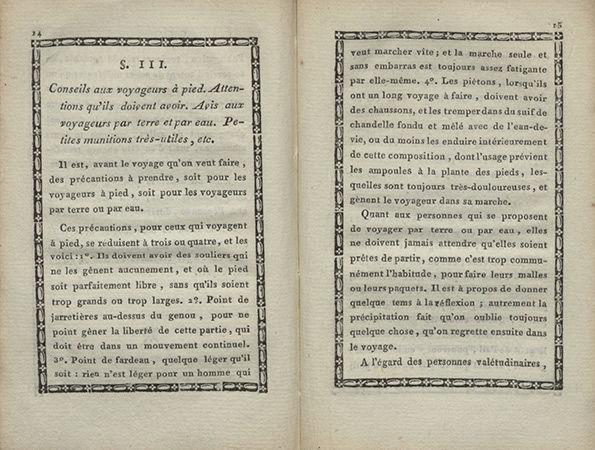 14
S. III.
Conseils aux voyageurs à pied. Atten-
tions qu'ils doivent avoir. Avis aux
voyageurs par terre et par eau. Pe-
tites munitions très-utiles, etc.
Il est, avant le voyage qu'on veut faire,
des précautions à prendre, soit pour les
voyageurs à pied, soit pour les voyageurs
par terre ou par eau.
Ces précautions, pour ceux qui voyagent
à pied, se réduisent à trois ou quatre, et les
voici : 1°. Ils doivent avoir des souliers qui
ne les gênent aucunement, et où le pied
soit parfaitement libre, sans qu'ils soient
trop grands ou trop larges. 2°. Point de
jarretières au-dessus du genou, pour ne
point gêner la liberté de cette partie, qui
doit être dans un mouvement continuel.
3°. Point de fardeau, quelque léger qu'il
soit : rien n'est léger pour un homme qui
15
veut marcher vite ; et la marche seule et
sans embarras est toujours assez fatigante
par elle-même. 4°. Les piétons, lorsqu'ils
ont un long voyage à faire, doivent avoir
des chaussons, et les tremper dans du suif de
chandelle fondu et mêlé avec de l'eau-de-
vie, ou du moins les enduire intérieurement
de cette composition, dont l'usage prévient
les ampoules à la plante des pieds, les-
quelles sont toujours très-douloureuses, et
gênent le voyageur dans sa marche.
Quant aux personnes qui se proposent
de voyager par terre ou par eau, elles
ne doivent jamais attendre qu'elles soient
prêtes de partir, comme c'est trop commu-
nément l'habitude, pour faire leurs malles
ou leurs paquets. Il est à propos de donner
quelque tems à la réflexion ; autrement la
précipitation fait qu'on oublie toujours
quelque chose, qu'on regrette ensuite dans
le voyage.
A l'égard des personnes valétudinaires,